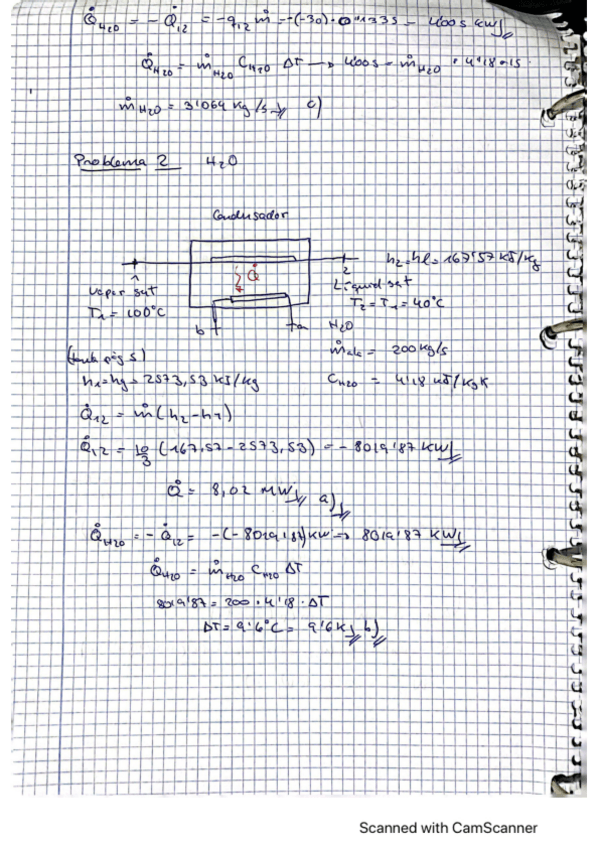 Q̇H2O = - Q̇12 = -q12 ṁ = -(-30)· = 400s kW
Q̇H2O = ṁH2O CH2O ΔT → 400s = ṁH2O · 4'18 · 15
ṁH2O = 3'064 kg/s c)
Problema 2 H2O
Condusador
h2=hl=167'57 kJ/kg
1 2
Q̇
vapor sat
Liquid sat
T1 = 100°C
T2=T1=40°C
b a
H2O
ṁ = 200 kg/s
h1=hg=2573,53 kJ/kg
CH2O = 4'18 kJ/kgK
Q̇12 = ṁ(h2-h1)
Q̇12 = 10/3 (167,57-2573,53) = -8019'87 KW
Q̇ = 8,02 MW a)
Q̇H2O = - Q̇12 = -(-8019'87)kW => 8019'87 KW
Q̇H2O = ṁH2O CH2O ΔT
8019'87 = 200 · 4'18 · ΔT
ΔT = 9'6°C = 9'6K b)
Scanned with CamScanner